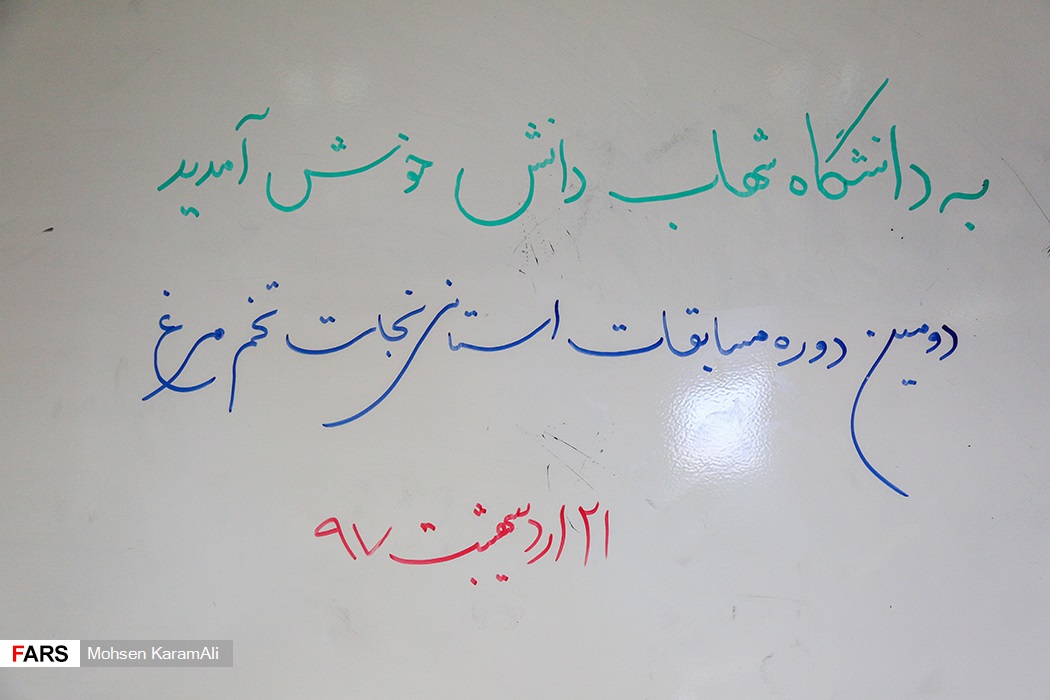 به دانشگاه شهاب دانش خوش آمدید
دومین دوره مسابقات استانی نجات تخم مرغ
۲۱ اردیبهشت ۹۷
FARS Mohsen KaramAli